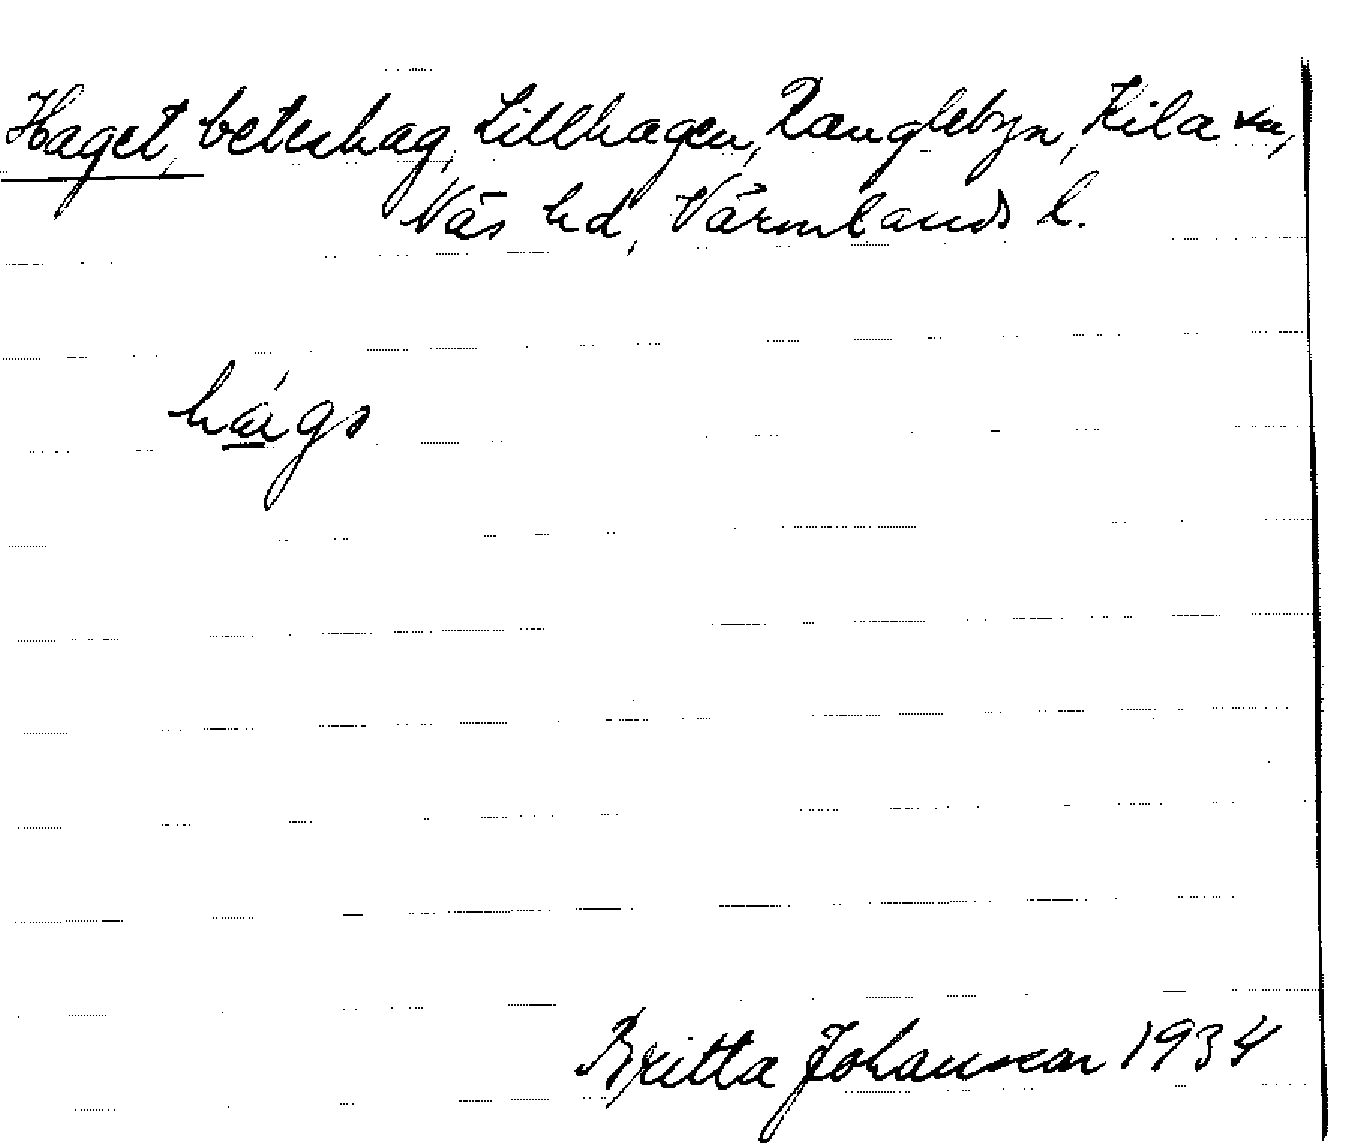 Haget, beteshag, Lillhagen, Ränglebyn, Kila sn,
Näs hd, Värmlands l.
Britta Johansson 1934